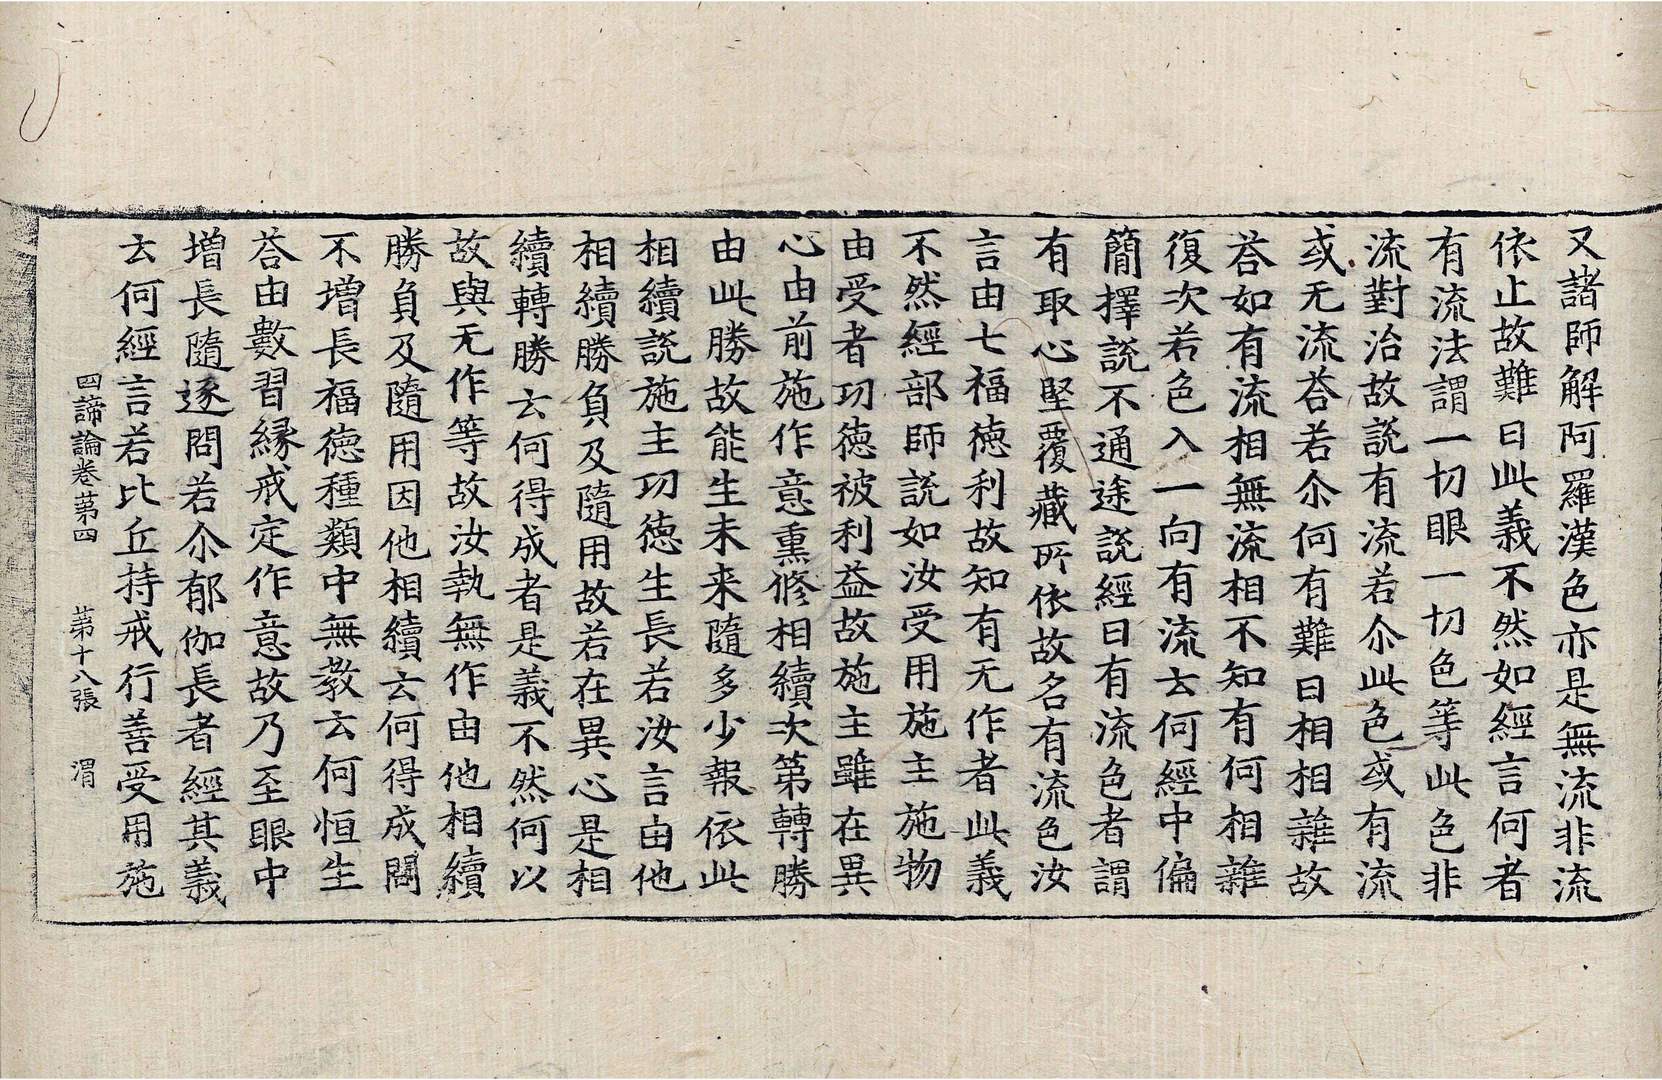 又諸師解阿羅漢色亦是無流非流
依止故難曰此義不然如經言何者
有流法謂一切眼一切色等此色非
流對治故說有流若尒此色或有流
或无流荅若尒何有難曰相相雜故
荅如有流相無流相不知有何相雜
復次若色入一向有流云何經中偏
簡擇說不通途說經曰有流色者謂
有取心堅覆藏所依故名有流色汝
言由七福德利故知有无作者此義
不然經部師說如汝受用施主施物
由受者功德被利益故施主雖在異
心由前施作意熏修相續次第轉勝
由此勝故能生未来隨多少報依此
相續說施主功德生長若汝言由他
相續勝負及隨用故若在異心是相
續轉勝云何得成者是義不然何以
故與无作等故汝執無作由他相續
勝負及隨用因他相續云何得成閞
不增長福德種類中無教云何恒生
荅由數習緣戒定作意故乃至眼中
增長隨逐問若尒郁伽長者經其義
云何經言若比丘持戒行善受用施
四諦論卷苐四　苐十八張　渭